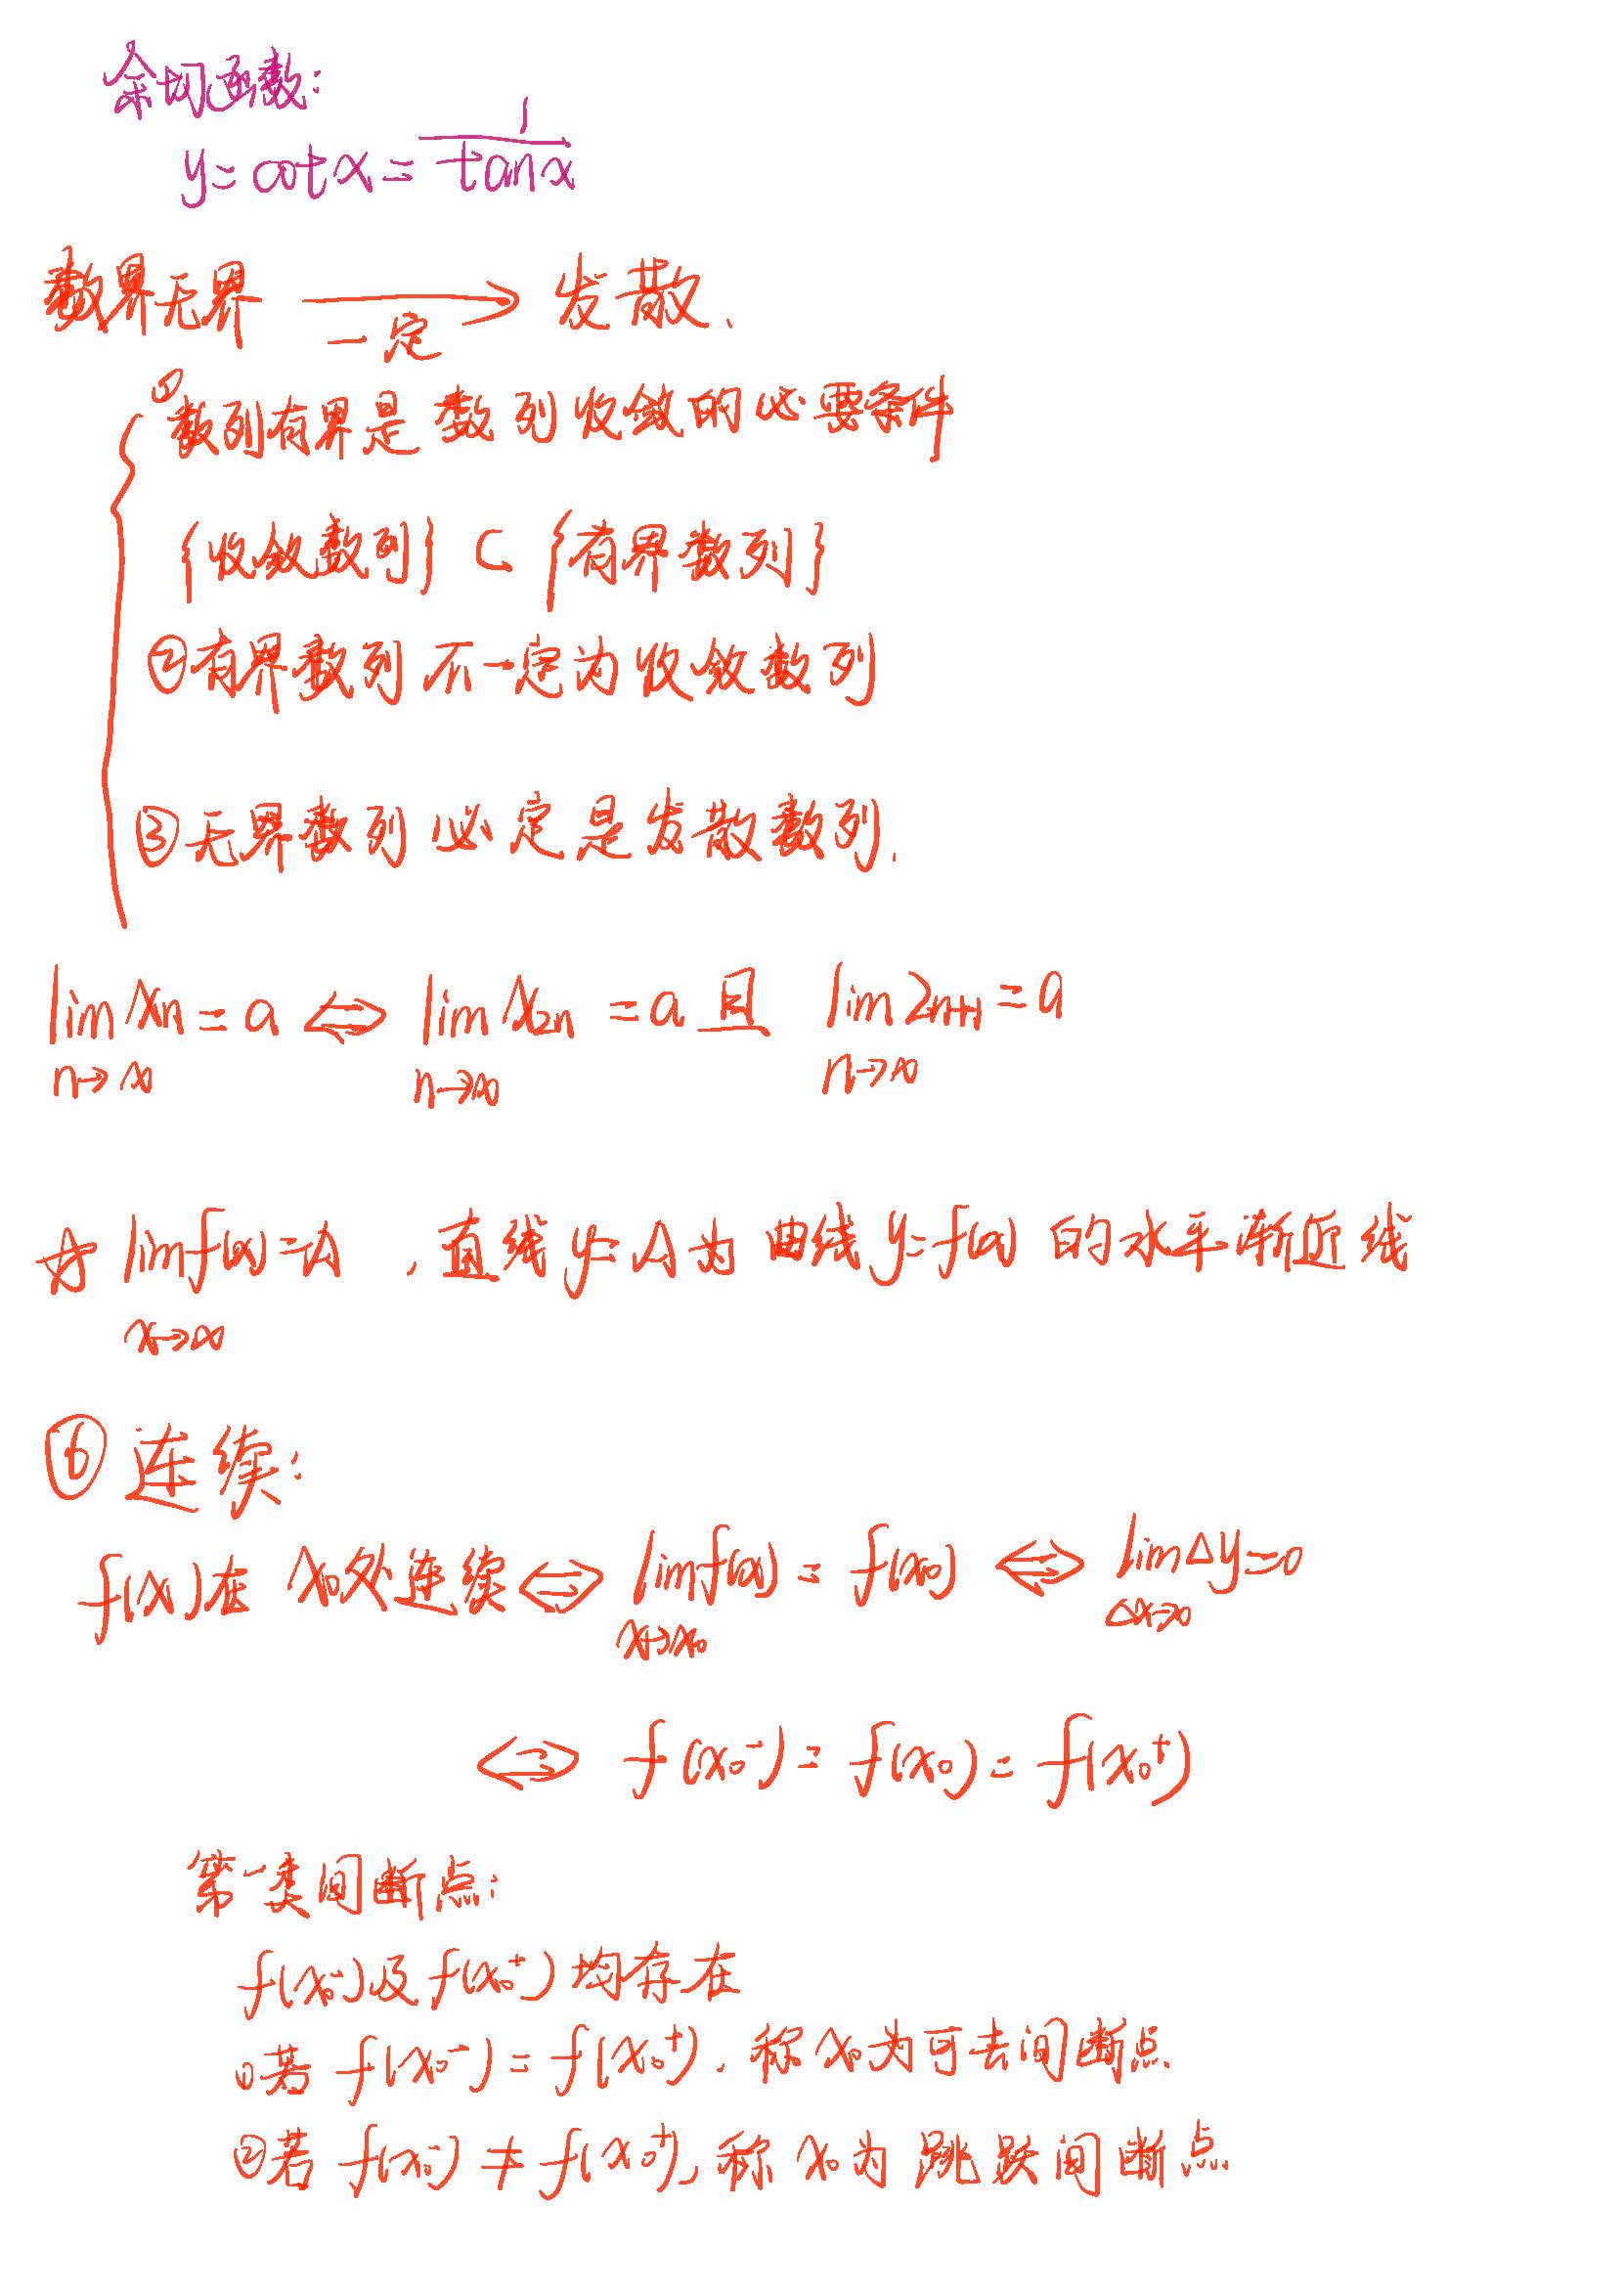 余切函数:
y=cotx=1/tanx
数界无界 ⟶ 发散.
一定
①数列有界是数列收敛的必要条件
{收敛数列}⊂{有界数列}
②有界数列不一定为收敛数列
③无界数列必定是发散数列.
lim Xn=a ⇔ lim X2n=a 且 lim 2n+1=a
n→∞ n→∞ n→∞
☆ lim f(x)=A ,直线y=A为曲线y=f(x)的水平渐近线
x→∞
⑥连续:
f(x)在x0处连续⇔lim f(x)=f(x0)⇔lim Δy=0
x→x0 Δx→0
⇔ f(x0⁻)=f(x0)=f(x0⁺)
第一类间断点:
f(x0⁻)及f(x0⁺)均存在
①若 f(x0⁻)=f(x0⁺),称x0为可去间断点
②若 f(x0⁻)≠f(x0⁺),称x0为跳跃间断点